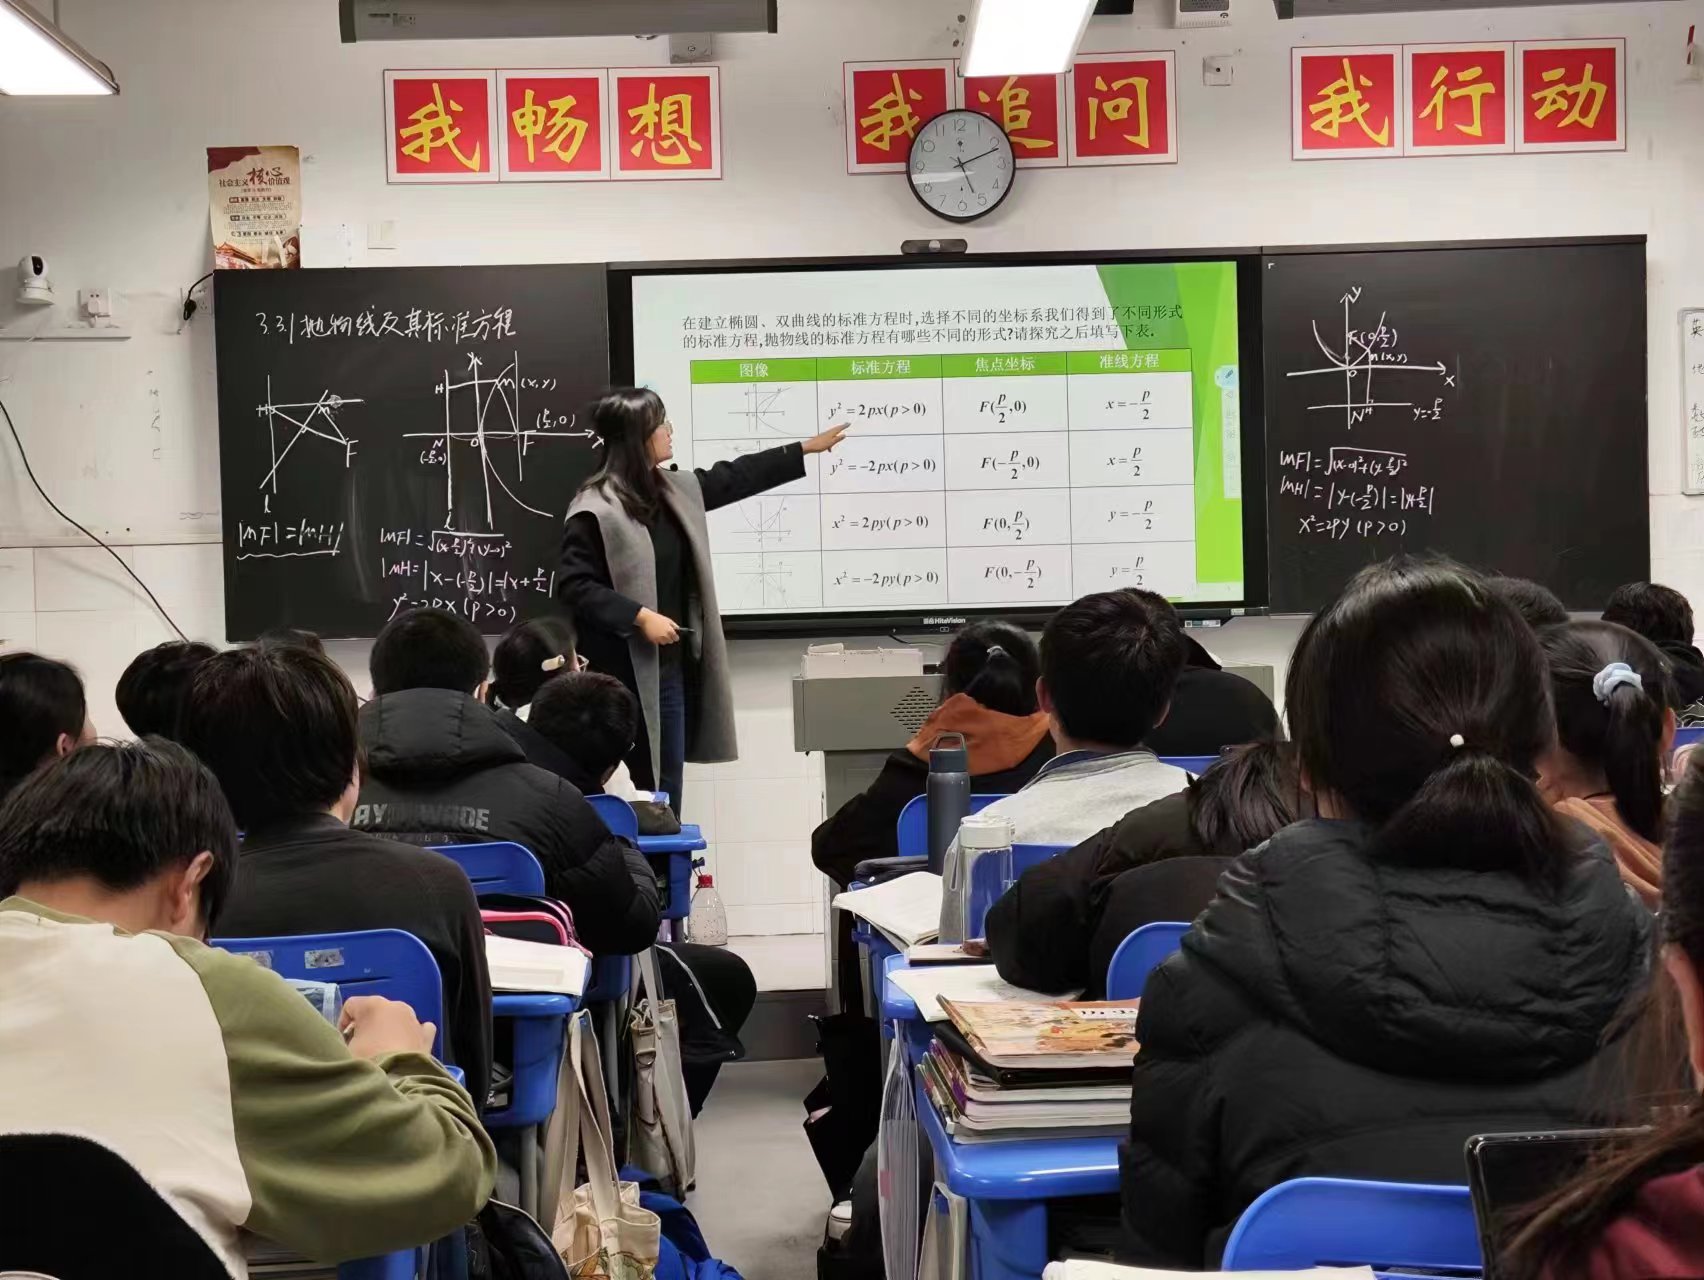 我畅想
我追问
我行动
社会主义核心价值观
12
3.3.1 抛物线及其标准方程
H
M
F
l
|MF|=|MH|
y
H
M(x,y)
(p/2,0)
N
O
F
x
(-p/2,0)
l
|MF|=√((x-p/2)²+(y-0)²)
|MH|=|x-(-p/2)|=|x+p/2|
y²=2px(p>0)
在建立椭圆、双曲线的标准方程时,选择不同的坐标系我们得到了不同形式
的标准方程,抛物线的标准方程有哪些不同的形式?请探究之后填写下表.
图像 标准方程 焦点坐标 准线方程
y²=2px(p>0) F(p/2,0) x=-p/2
y²=-2px(p>0) F(-p/2,0) x=p/2
x²=2py(p>0) F(0,p/2) y=-p/2
x²=-2py(p>0) F(0,-p/2) y=p/2
HiteVision
y
F(0,p/2)
M(x,y)
O
x
N
H
y=-p/2
|MF|=√((x-0)²+(y-p/2)²
|MH|=|y-(-p/2)|=|y+p/2|
x²=2py(p>0)